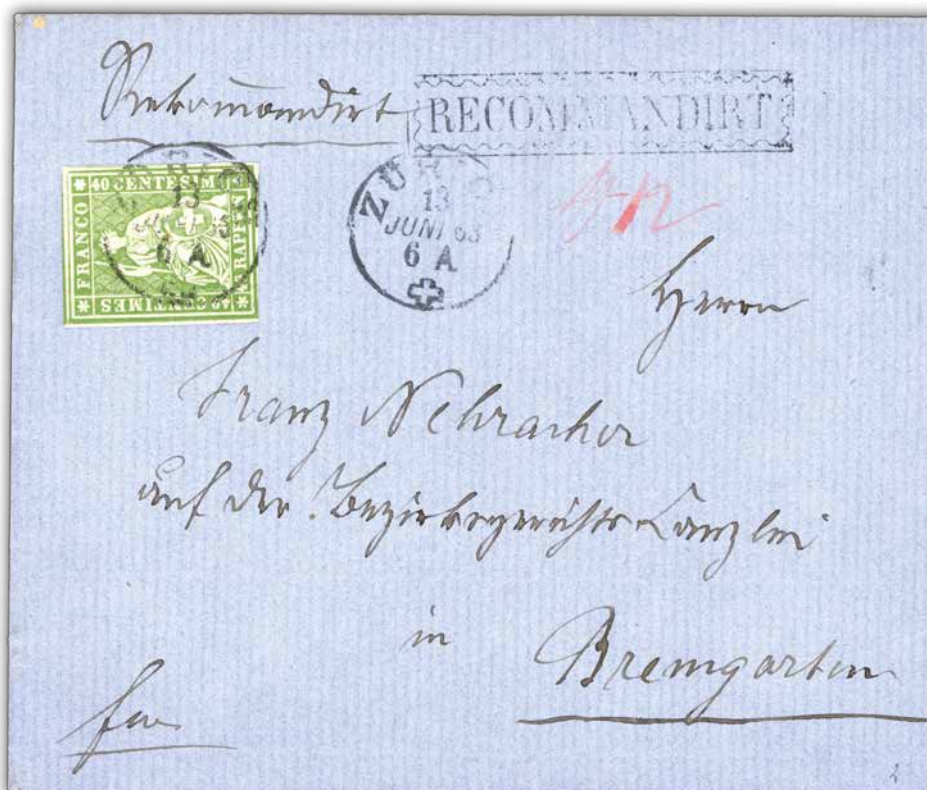 Rekomandirt
RECOMMANDIRT
40 CENTESIMI
FRANCO
RAPPEN
40 CENTIMES
13
6 A
ZÜRICH
13
JUNI 63
6 A
Herrn
Franz Nehracher
auf der Bezirksgerichts Canzlei
in
Bremgarten